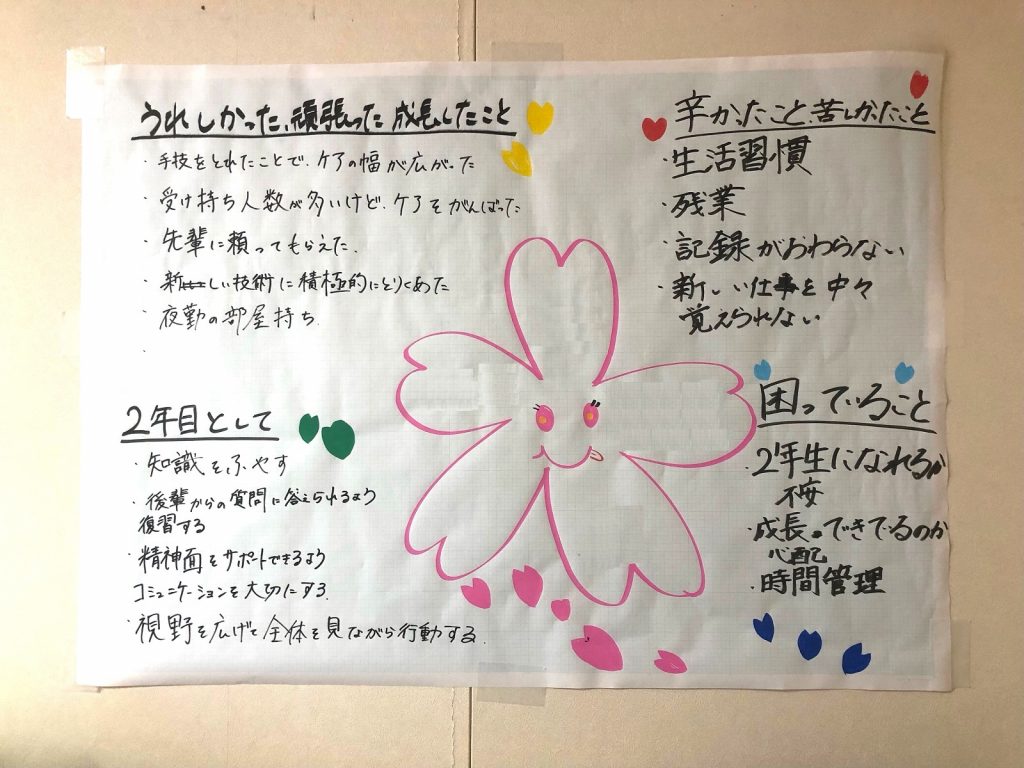 うれしかった、頑張った 成長したこと
・手技をとれたことで、ケアの幅が広がった
・受け持ち人数が多いけど、ケアをがんばった
・先輩に頼ってもらえた。
・新しい技術に積極的にとりくめた
・夜勤の部屋持ち
・
辛かったこと、苦しかったこと
・生活習慣
・残業
・記録がおわらない
・新しい仕事を中々
覚えられない
2年目として
・知識をふやす
・後輩からの質問に答えられるよう
復習する
・精神面をサポートできるよう
コミュニケーションを大切にする
・視野を広げて全体を見ながら行動する.
困っていること
・2年生になれるか
不安
・成長。できてるのか
心配
・時間管理